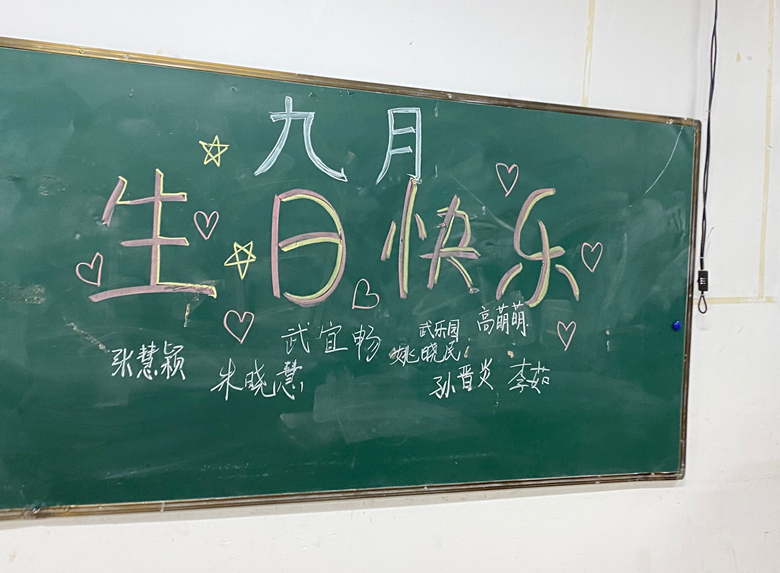 九月
生日快乐
张慧颖
朱晓慧
武宜畅
武乐园
姚晓民
高萌萌
孙晋炎
李茹